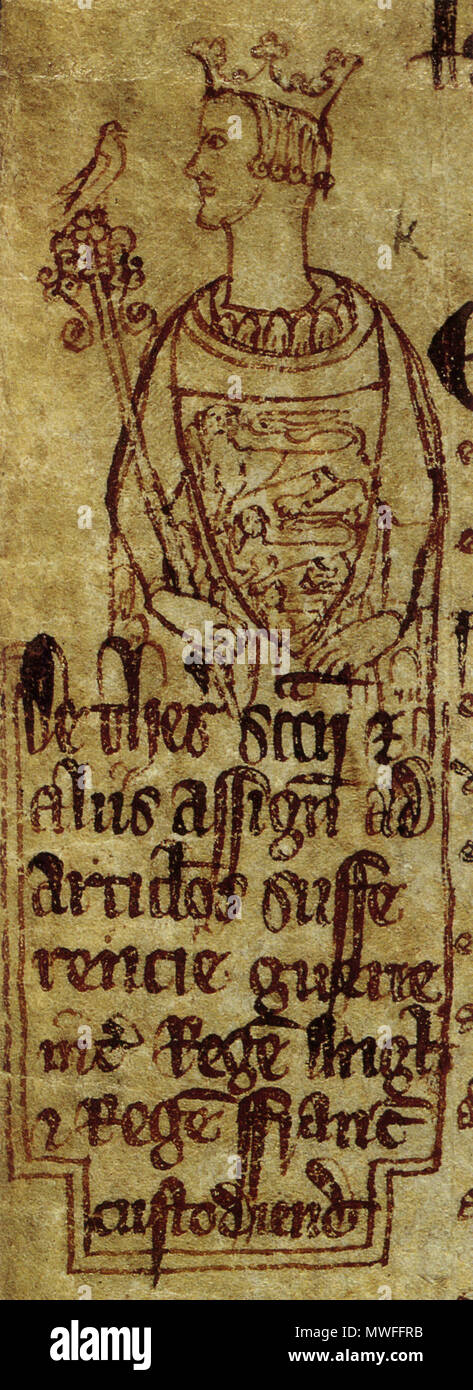 K
De thes' sccij et
aliis assign' ad
Articlos suffe
rencie guerre
int' Regē Angl'
et Regē ffranc'
custodiend'
alamy
alamy
Image ID: MWFFRB
www.alamy.com